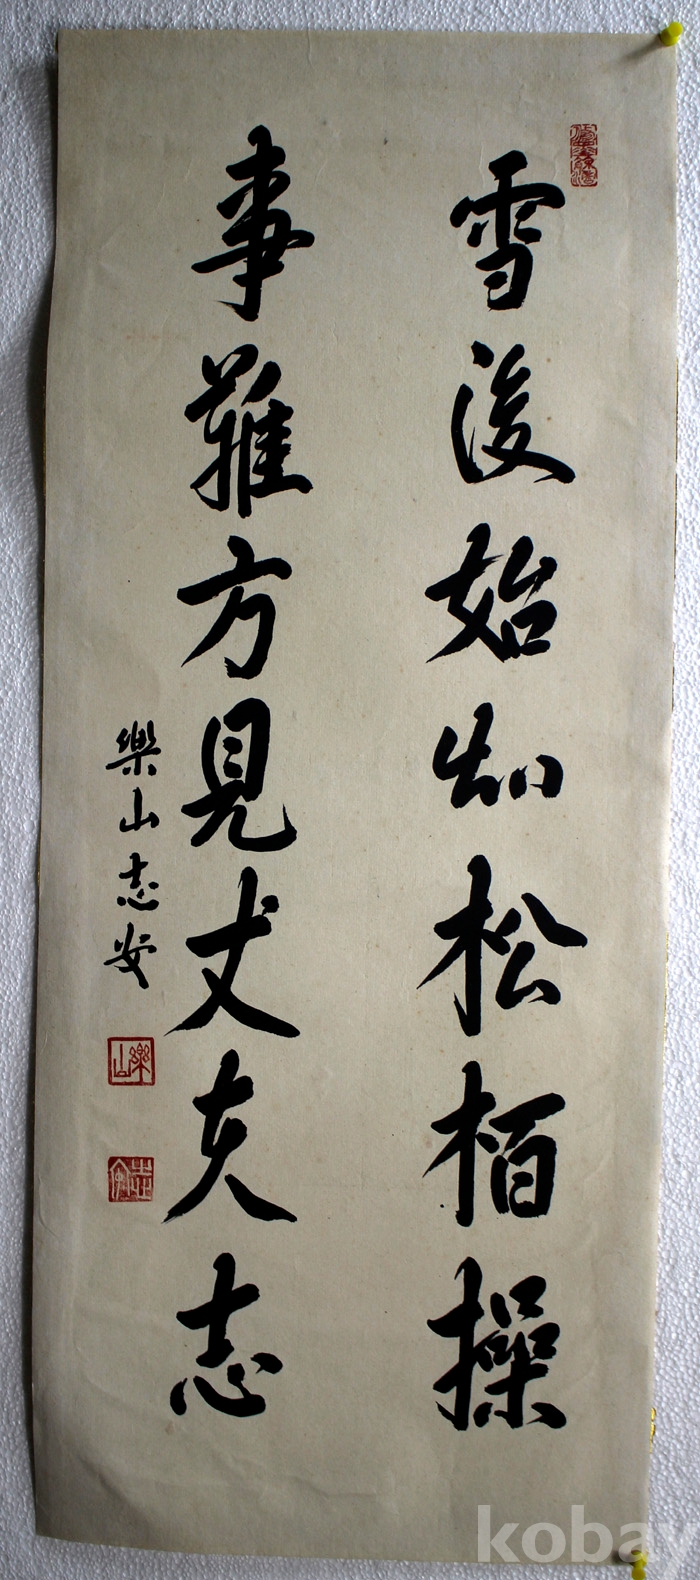 雪後始知松栢操
事難方見丈夫志
樂山志安
樂山
志安
kobay